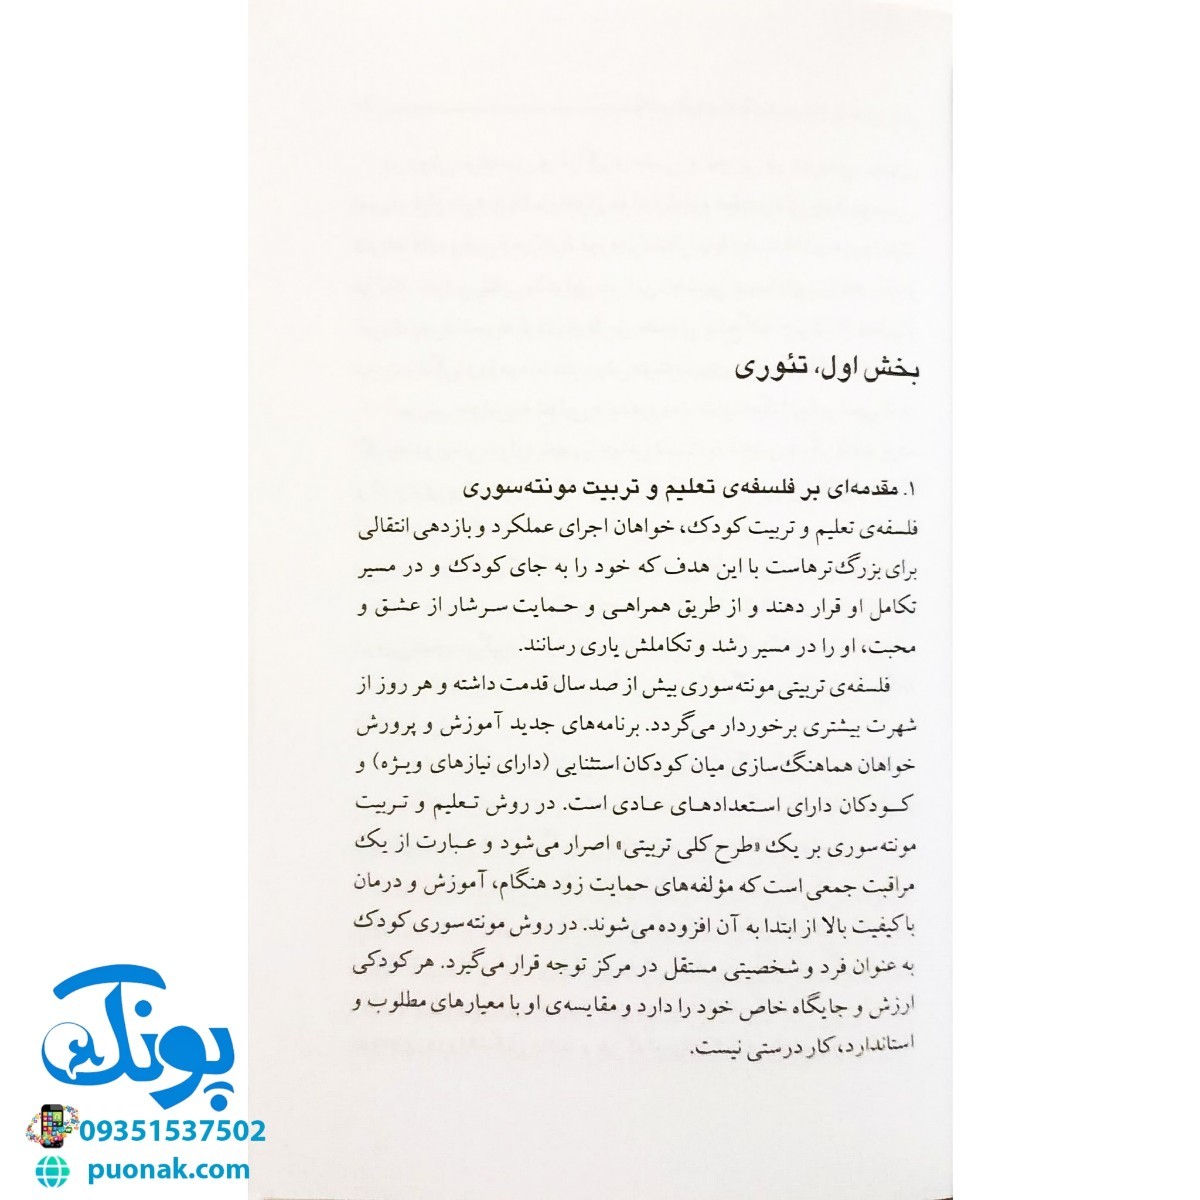 بخش اول، تئوری
۱. مقدمه‌ای بر فلسفه‌ی تعلیم و تربیت مونته‌سوری
فلسفه‌ی تعلیم و تربیت کودک، خواهان اجرای عملکرد و بازدهی انتقالی
برای بزرگ‌ترهاست با این هدف که خود را به جای کودک و در مسیر
تکامل او قرار دهند و از طریق همراهی و حمایت سرشار از عشق و
محبت، او را در مسیر رشد و تکاملش یاری رسانند.
فلسفه‌ی تربیتی مونته‌سوری بیش از صد سال قدمت داشته و هر روز از
شهرت بیشتری برخوردار می‌گردد. برنامه‌های جدید آموزش و پرورش
خواهان هماهنگ‌سازی میان کودکان استثنایی (دارای نیازهای ویژه) و
کودکان دارای استعدادهای عادی است. در روش تعلیم و تربیت
مونته‌سوری بر یک «طرح کلی تربیتی» اصرار می‌شود و عبارت از یک
مراقبت جمعی است که مؤلفه‌های حمایت زود هنگام، آموزش و درمان
با کیفیت بالا از ابتدا به آن افزوده می‌شوند. در روش مونته‌سوری کودک
به عنوان فرد و شخصیتی مستقل در مرکز توجه قرار می‌گیرد. هر کودکی
ارزش و جایگاه خاص خود را دارد و مقایسه‌ی او با معیارهای مطلوب و
استاندارد، کار درستی نیست.
پونک
09351537502
puonak.com